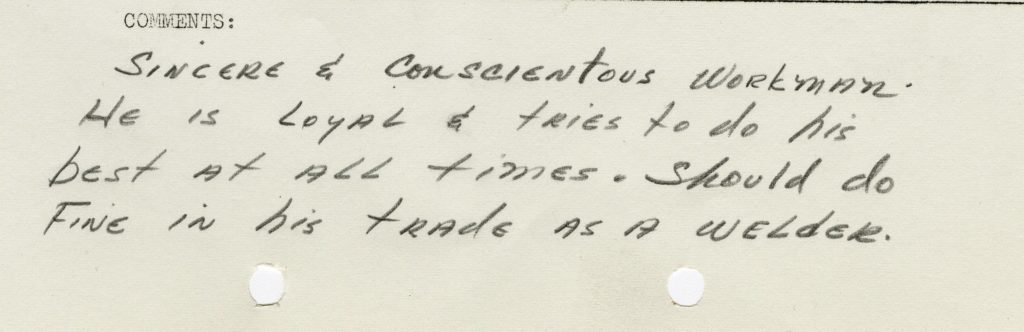 COMMENTS:
SINCERE & CONSCIENTOUS WORKMAN.
HE IS LOYAL & TRIES to do his
best AT ALL times. Should do
FINE IN his TRADE AS A WELDER.